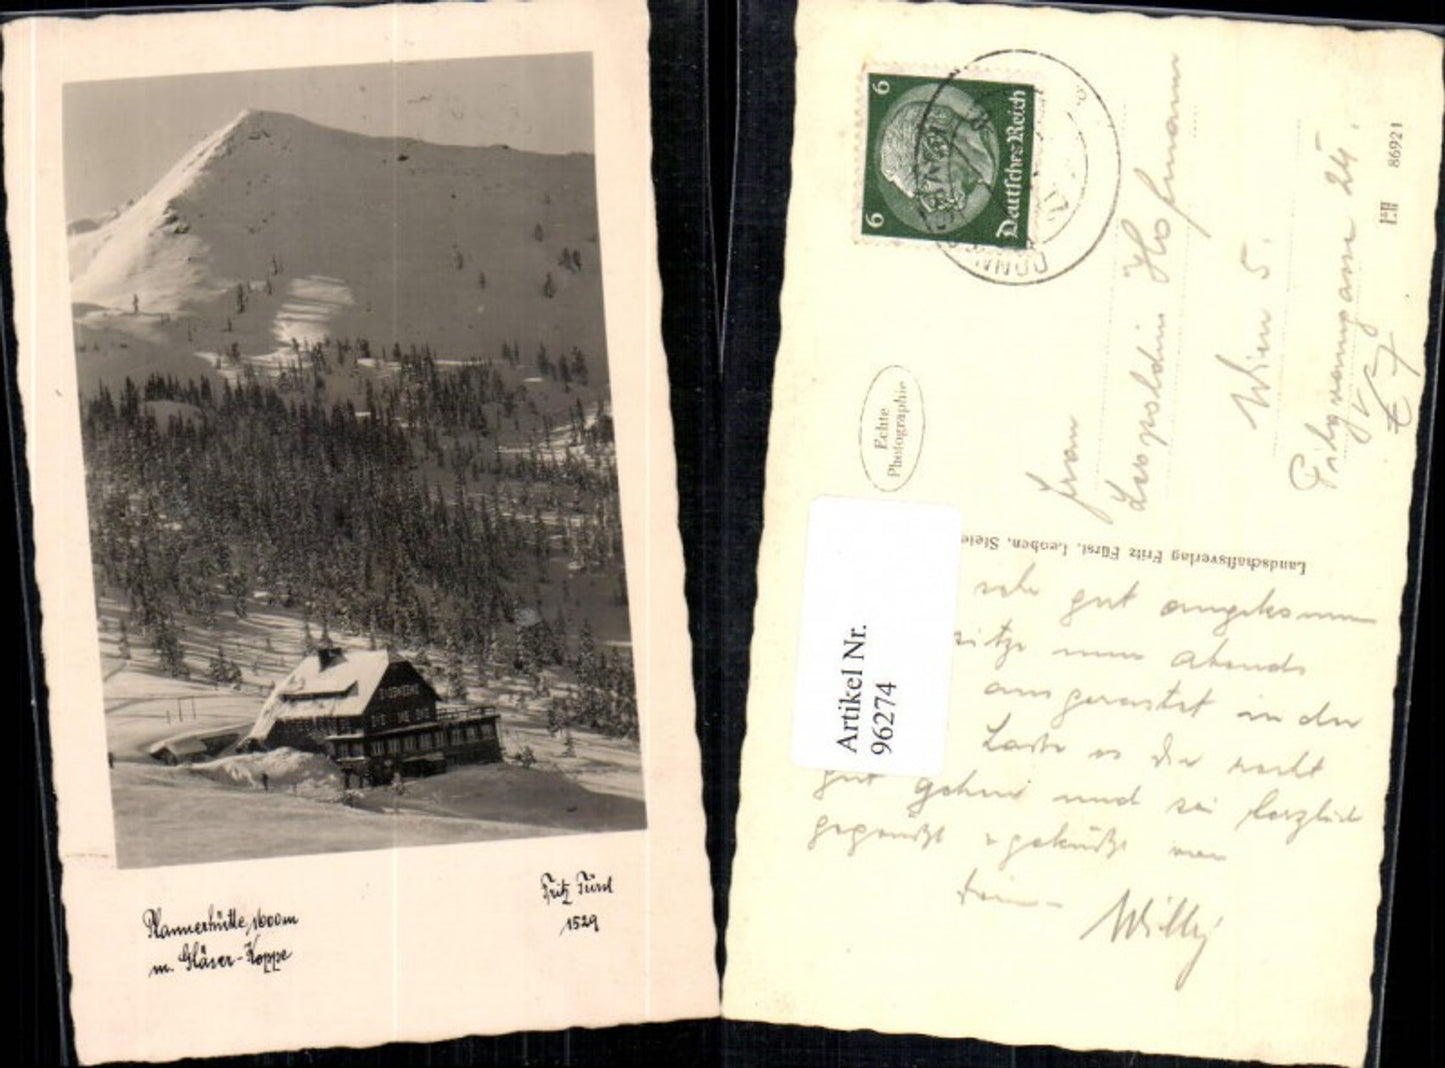 Plannerhütte, 1600m
m. Gläser-Koppe
Fritz Fürst
1529
6
6
Deutsches Reich
DONN
Echte
Photographie
86921
Frau
Leopoldine Hofmann
Wien 5.
Pilgramgasse 24.
Landschaftsverlag Fritz Fürst, Leoben, Steie
Artikel Nr.
96274
sehr gut angekommen
sitze nun abends
ausgerastet in der
gut gehen und sei herzlich
gegrüßt u geküßt von
Willy